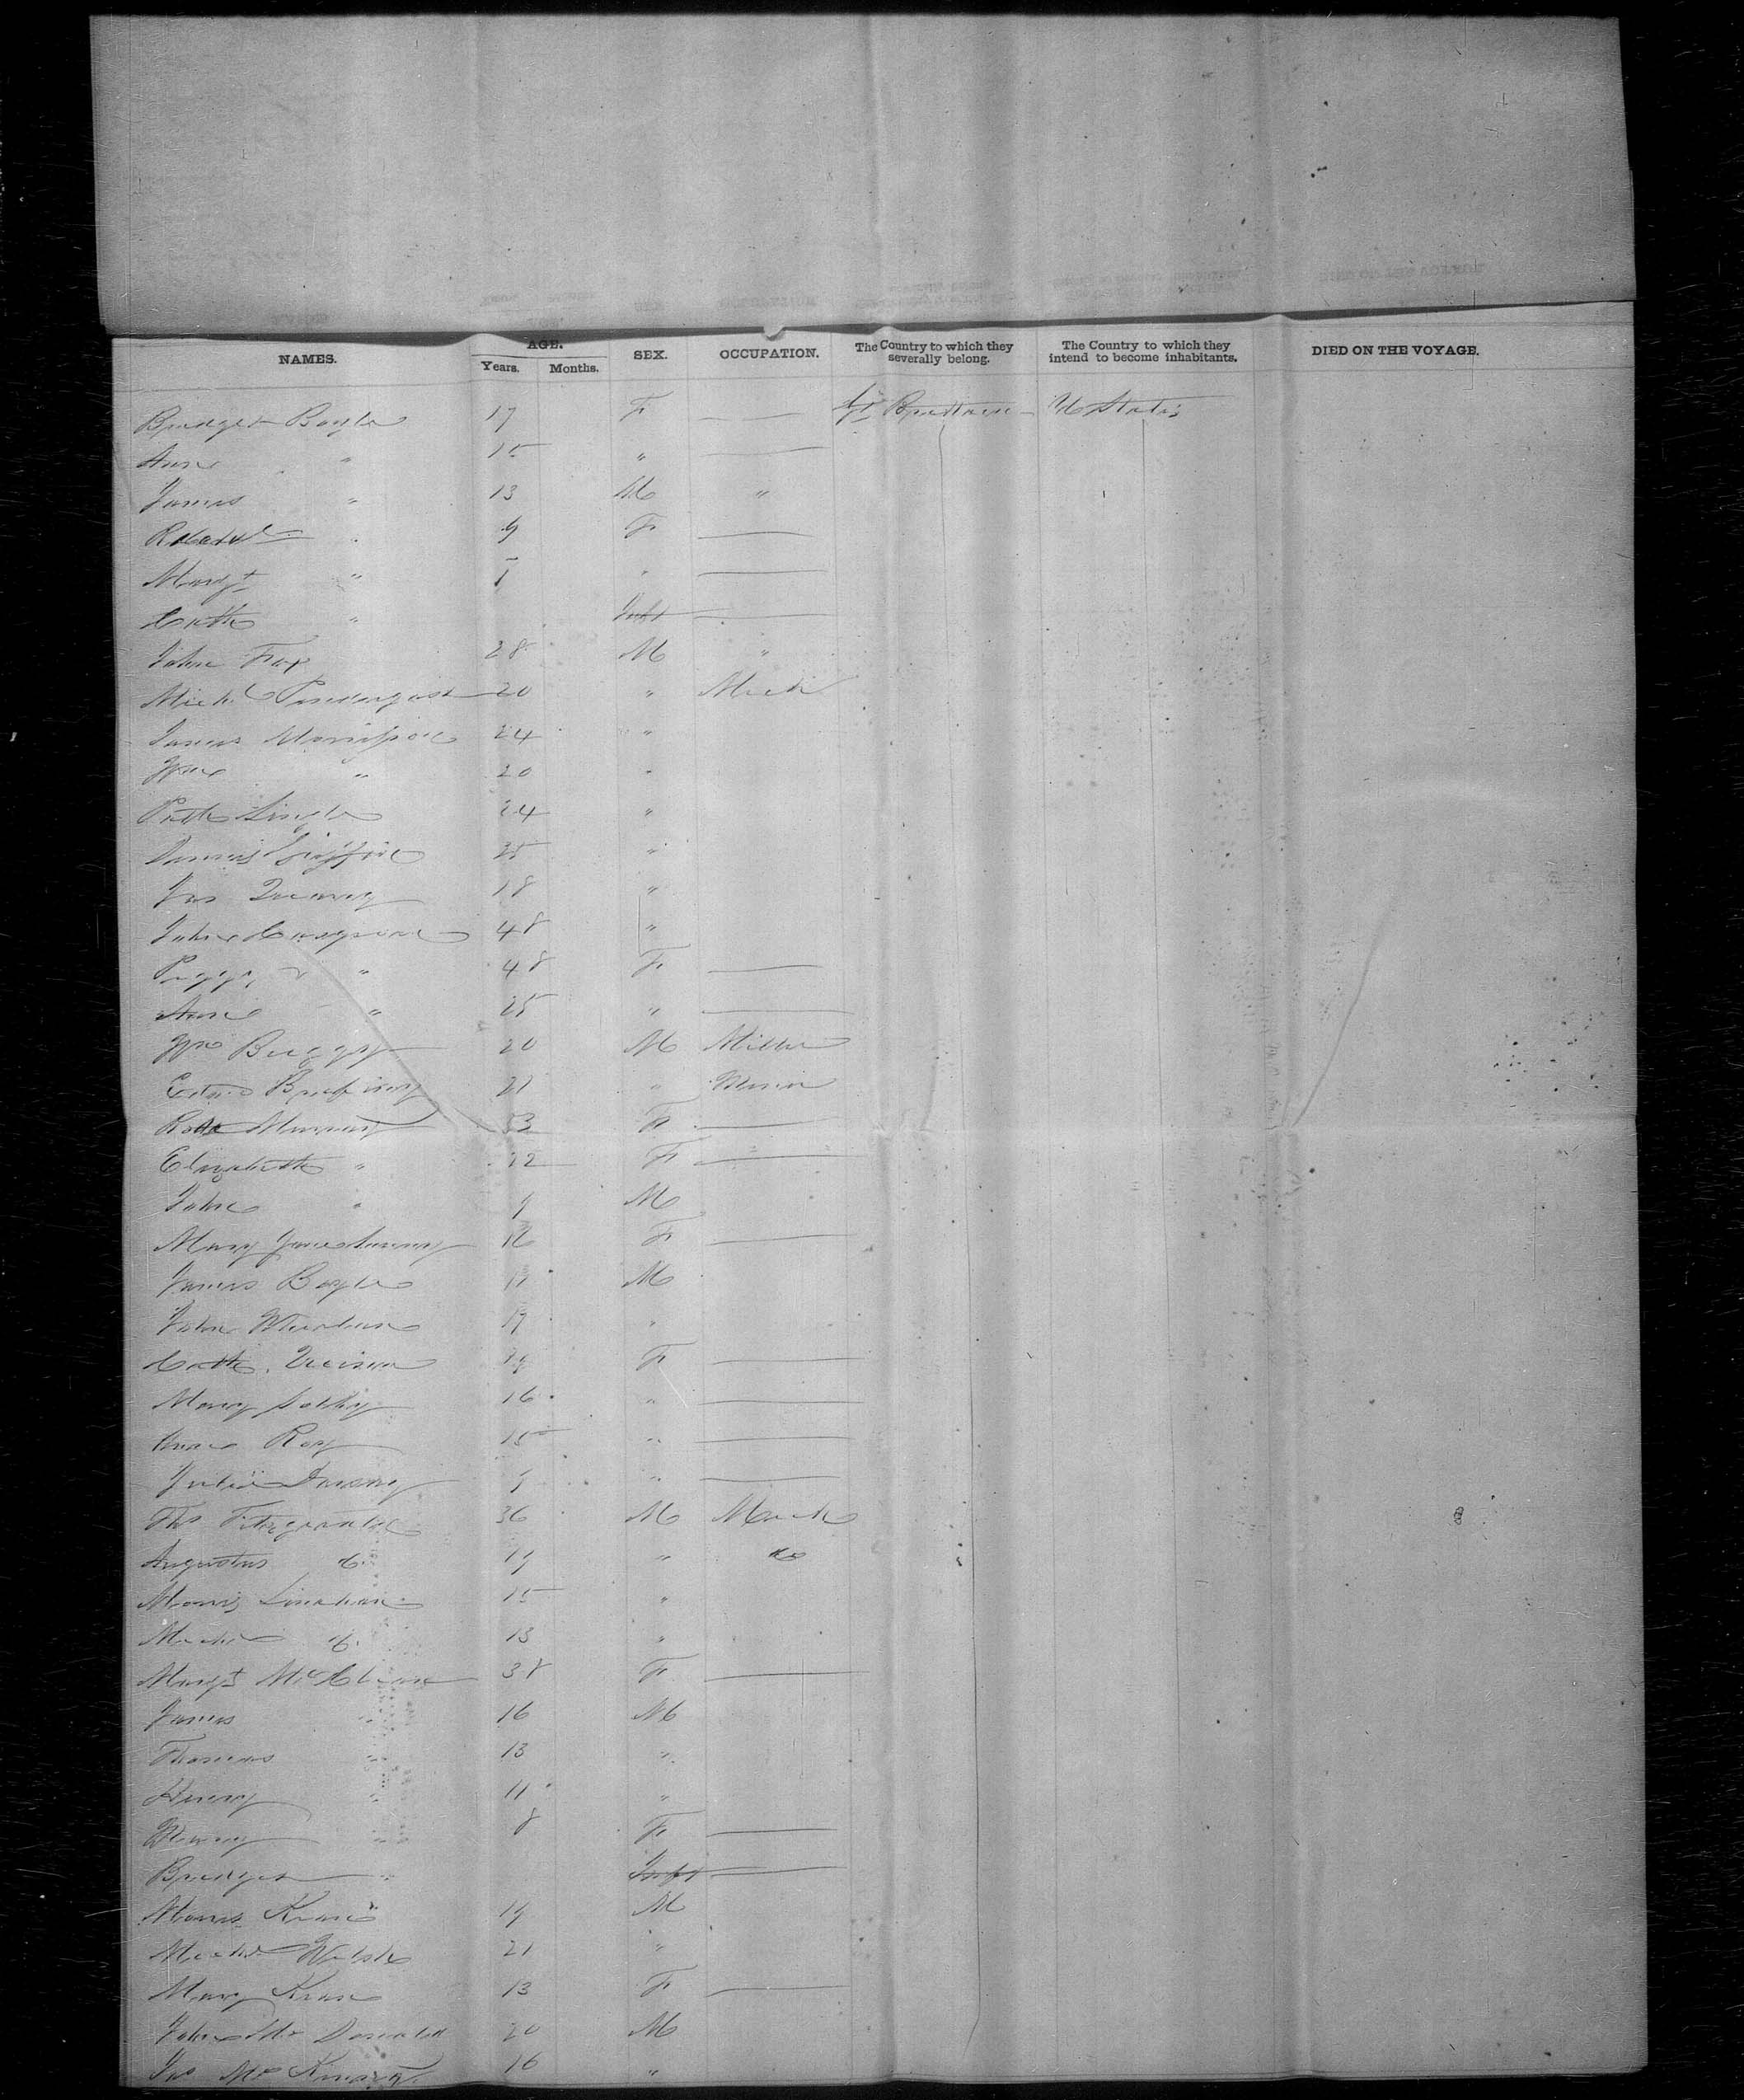 NAMES. AGE. SEX. OCCUPATION. The Country to which they severally belong. The Country to which they intend to become inhabitants. DIED ON THE VOYAGE.
Years. Months.
Bridget Boyle 17 F — Gt Brittain U States
Ann " 15 " —
James " 13 M "
9 F —
Margt " " —
Cath " Inft —
John Fox 28 M "
Michl Pendergast 20 " Mech
James Morrison 24 "
Wm " 20 "
Patk 24 "
Dennis Griffin 25 "
Jas 18 "
John Cosgrove 48 "
Peggy " 48 F —
Ann " 25 " —
Wm Buggy 20 M Miller
21 "
Rose Murray 53 F —
Elizabeth " 22 F —
John " 9 M
Mary Jane 16 F —
James Boyle 17 M
John 19 "
Cath. 19 F —
Mary 16 " —
Roy 15 " —
Julia " —
Ths Fitzgerald 36 M Mech
Augustus " 19 " do
Morris Linahan 15 "
Michl " 13 "
Margt Mc 38 F —
James " 16 M
Thomas " 13 "
Henry " 11 "
" 8 F —
Bridget " Inft —
Morris Kane 19 M
Michl Welsh 21 "
Mary Kane 13 F —
John Mc Donald 20 M
Jas Mc 16 "